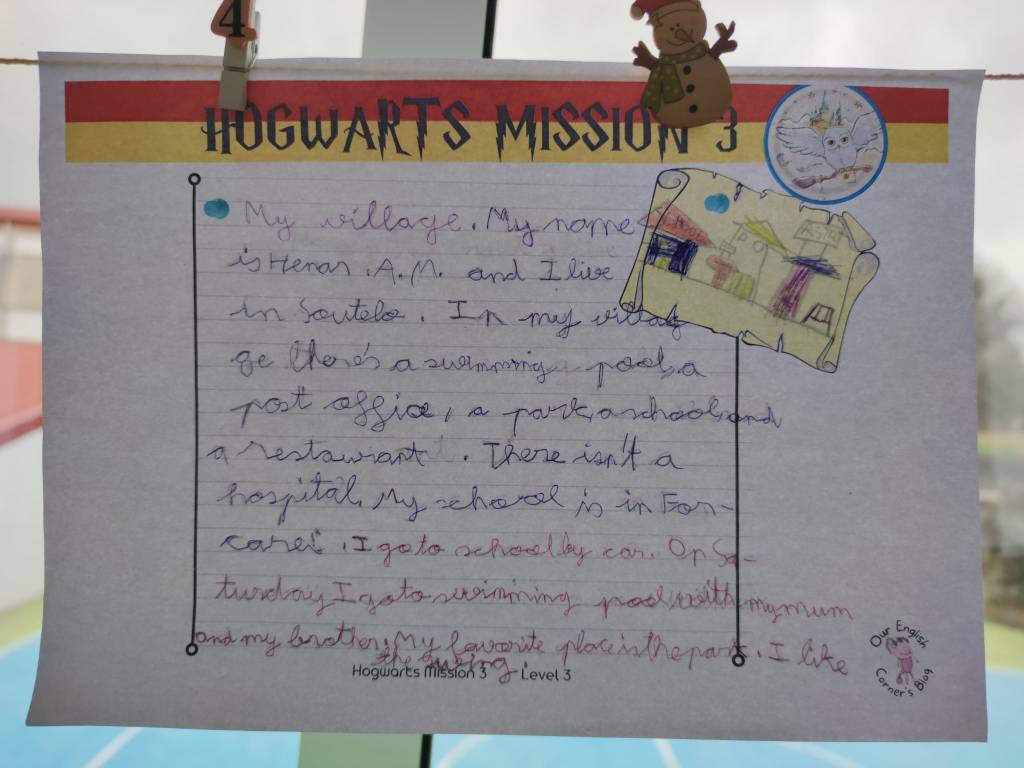 4
HOGWARTS MISSION 3
SCHOOL
My village. My name
is Henar A.M. and I live
in Soutelo. In my villag
ge there's a swimming pool, a
post office, a park, a school, and
a restaurant. There isn't a
hospital. My school is in For-
carei. I go to school by car. On Sa-
turday I go to swimming pool with my mum
and my brother. My favorite place is the park. I like
the swing.
Hogwarts Mission 3 Level 3
Our English
Corner's Blog